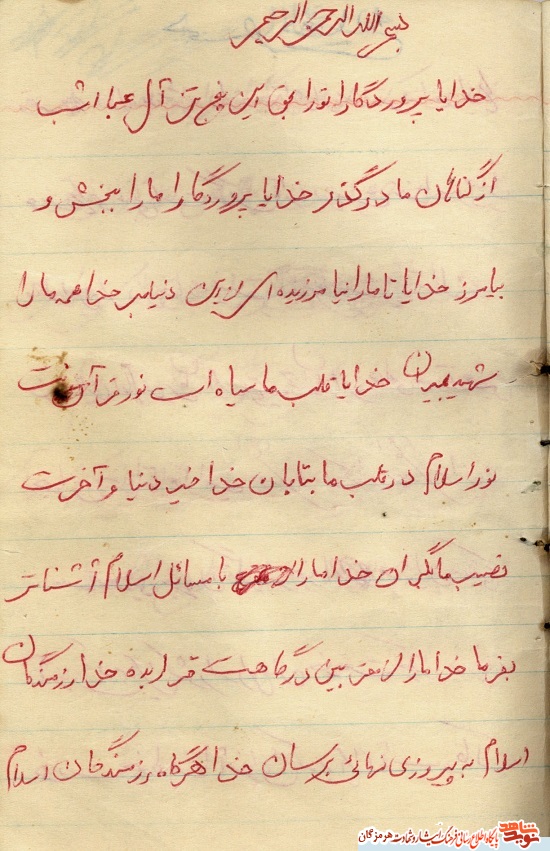 بسم الله الرحمن الرحیم
خدایا پروردگارا تورا بحق این پنج تن آل عبا امشب
از گناهان ما درگذر خدایا پروردگارا ما را ببخش و
بیامرز خدایا تا ما را نیامرزیده ای از این دنیا مبر خدا همه ما را
شهید بمیران خدایا قلب ما سیاه است نور قرآن
نور اسلام در قلب ما بتابان خدا خیر دنیا و آخرت
نصیب ما بگردان خدا ما را با مسائل اسلام آشناتر
بفرما خدا ما را از مقربین درگاهت قرار بده خدا رزمندگان
اسلام به پیروزی نهائی برسان خدا هرگاه رزمندگان اسلام
نوید شاهد
پایگاه اطلاع رسانی فرهنگ ایثار و شهادت هرمزگان